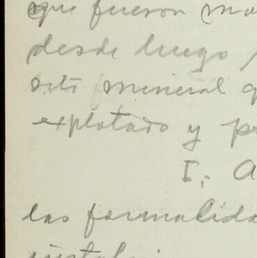 que fueron
desde luego
este mineral
explotado y
I.
las formalida